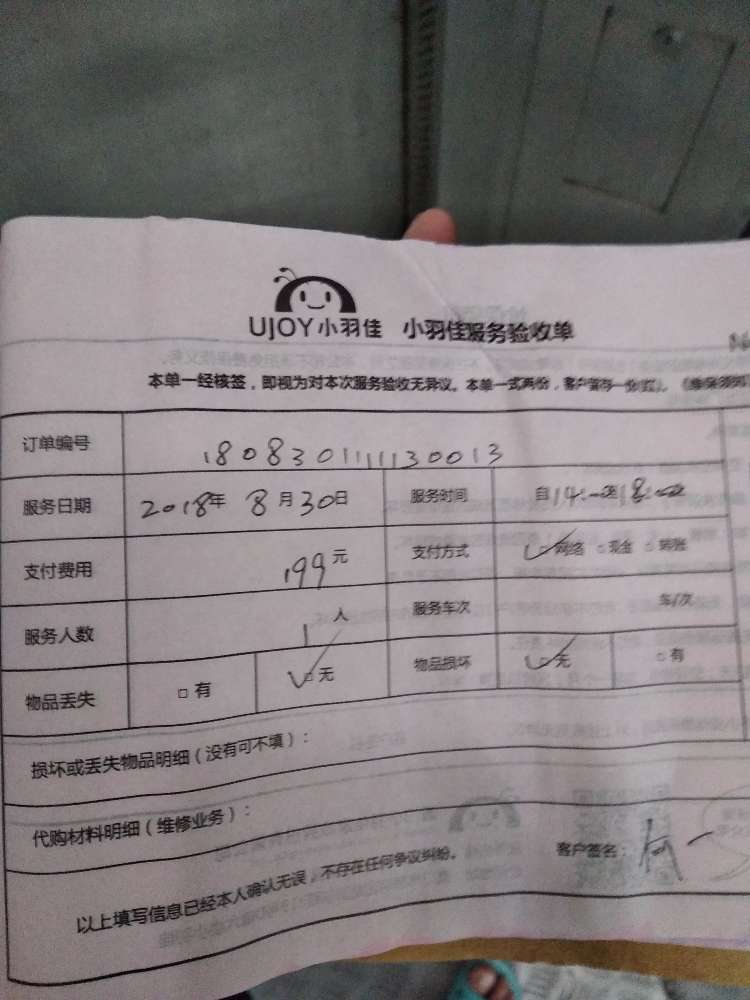 UJOY小羽佳 小羽佳服务验收单
本单一经核签，即视为对本次服务验收无异议。本单一式两份，客户留存一份(红)。
订单编号 1808301111130013
服务日期 2018年 8月30日 服务时间 自14:00至18:00
支付费用 199元 支付方式 □网络 □现金 □转账
服务人数 1人 服务车次 车/次
物品丢失 □有 □无 物品损坏 □无 □有
损坏或丢失物品明细（没有可不填）：
代购材料明细（维修业务）：
以上填写信息已经本人确认无误，不存在任何争议纠纷。 客户签名：